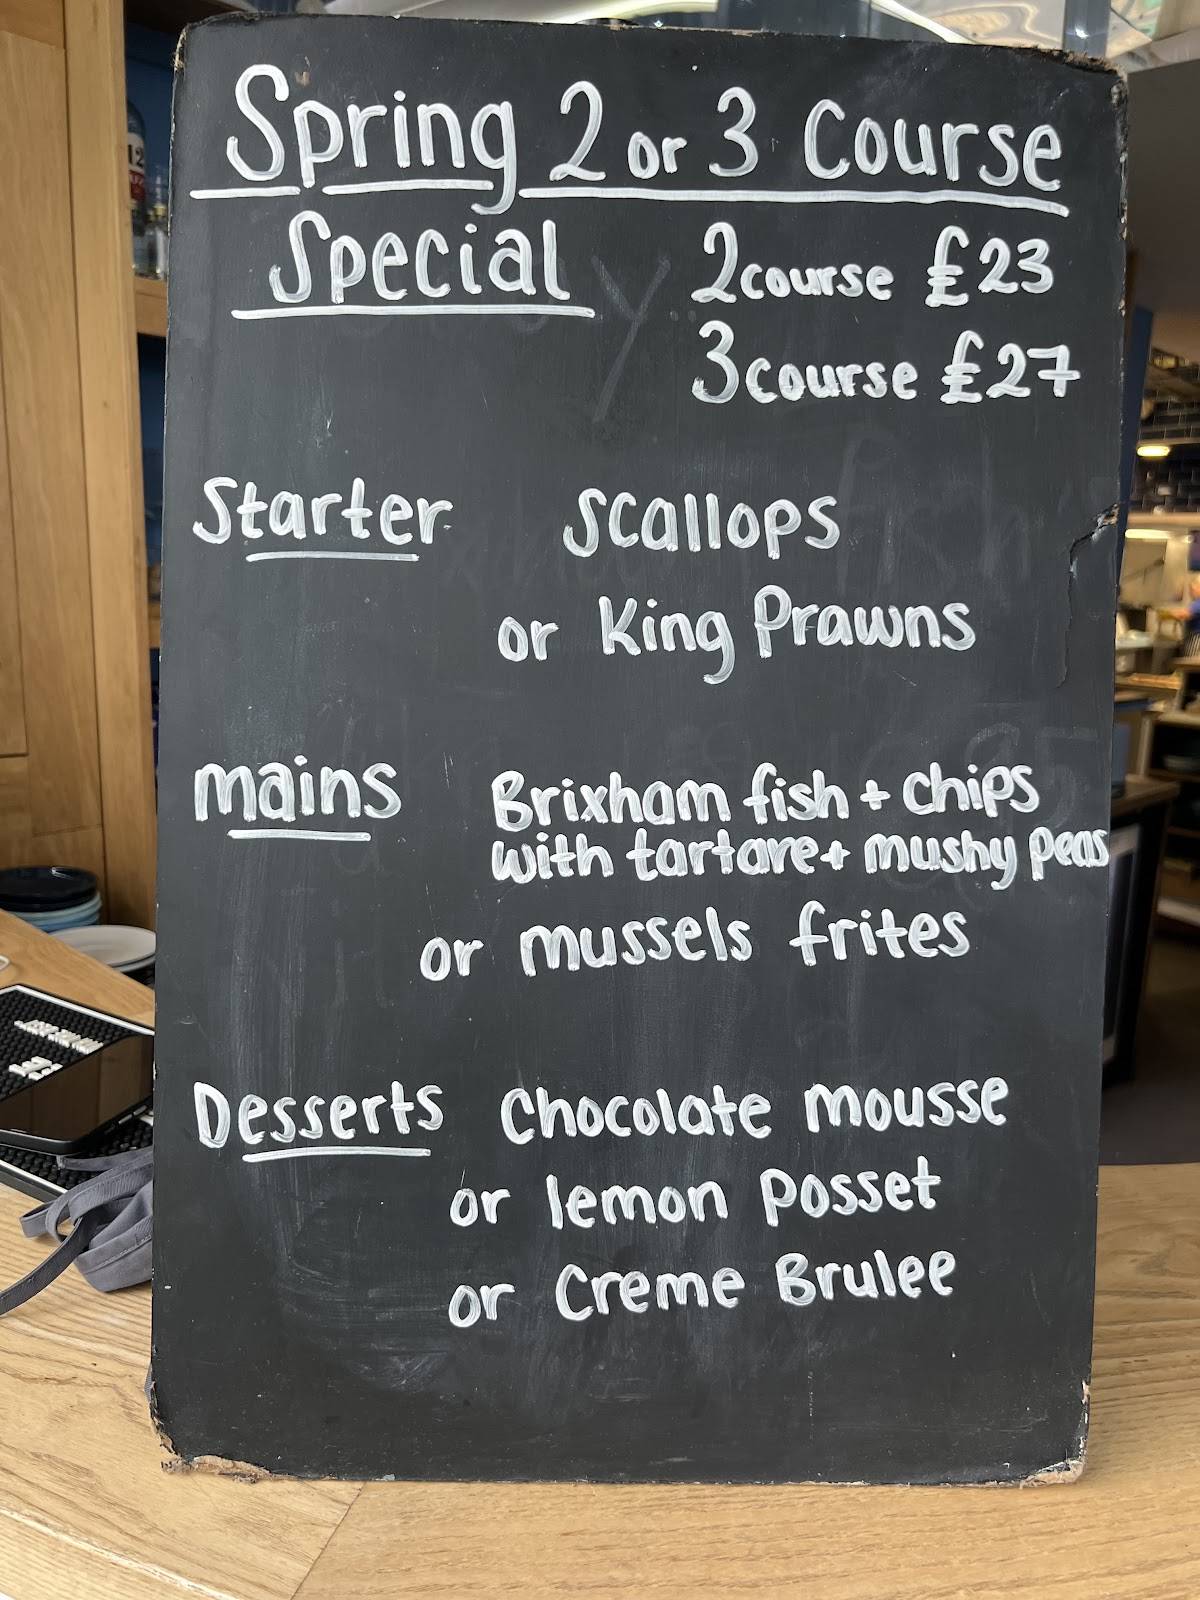 Spring 2 or 3 Course
Special
2 course £23
3 course £27
Starter Scallops
or King Prawns
mains Brixham fish + chips
with tartare + mushy peas
or mussels frites
Desserts Chocolate mousse
or lemon posset
or Creme Brulee